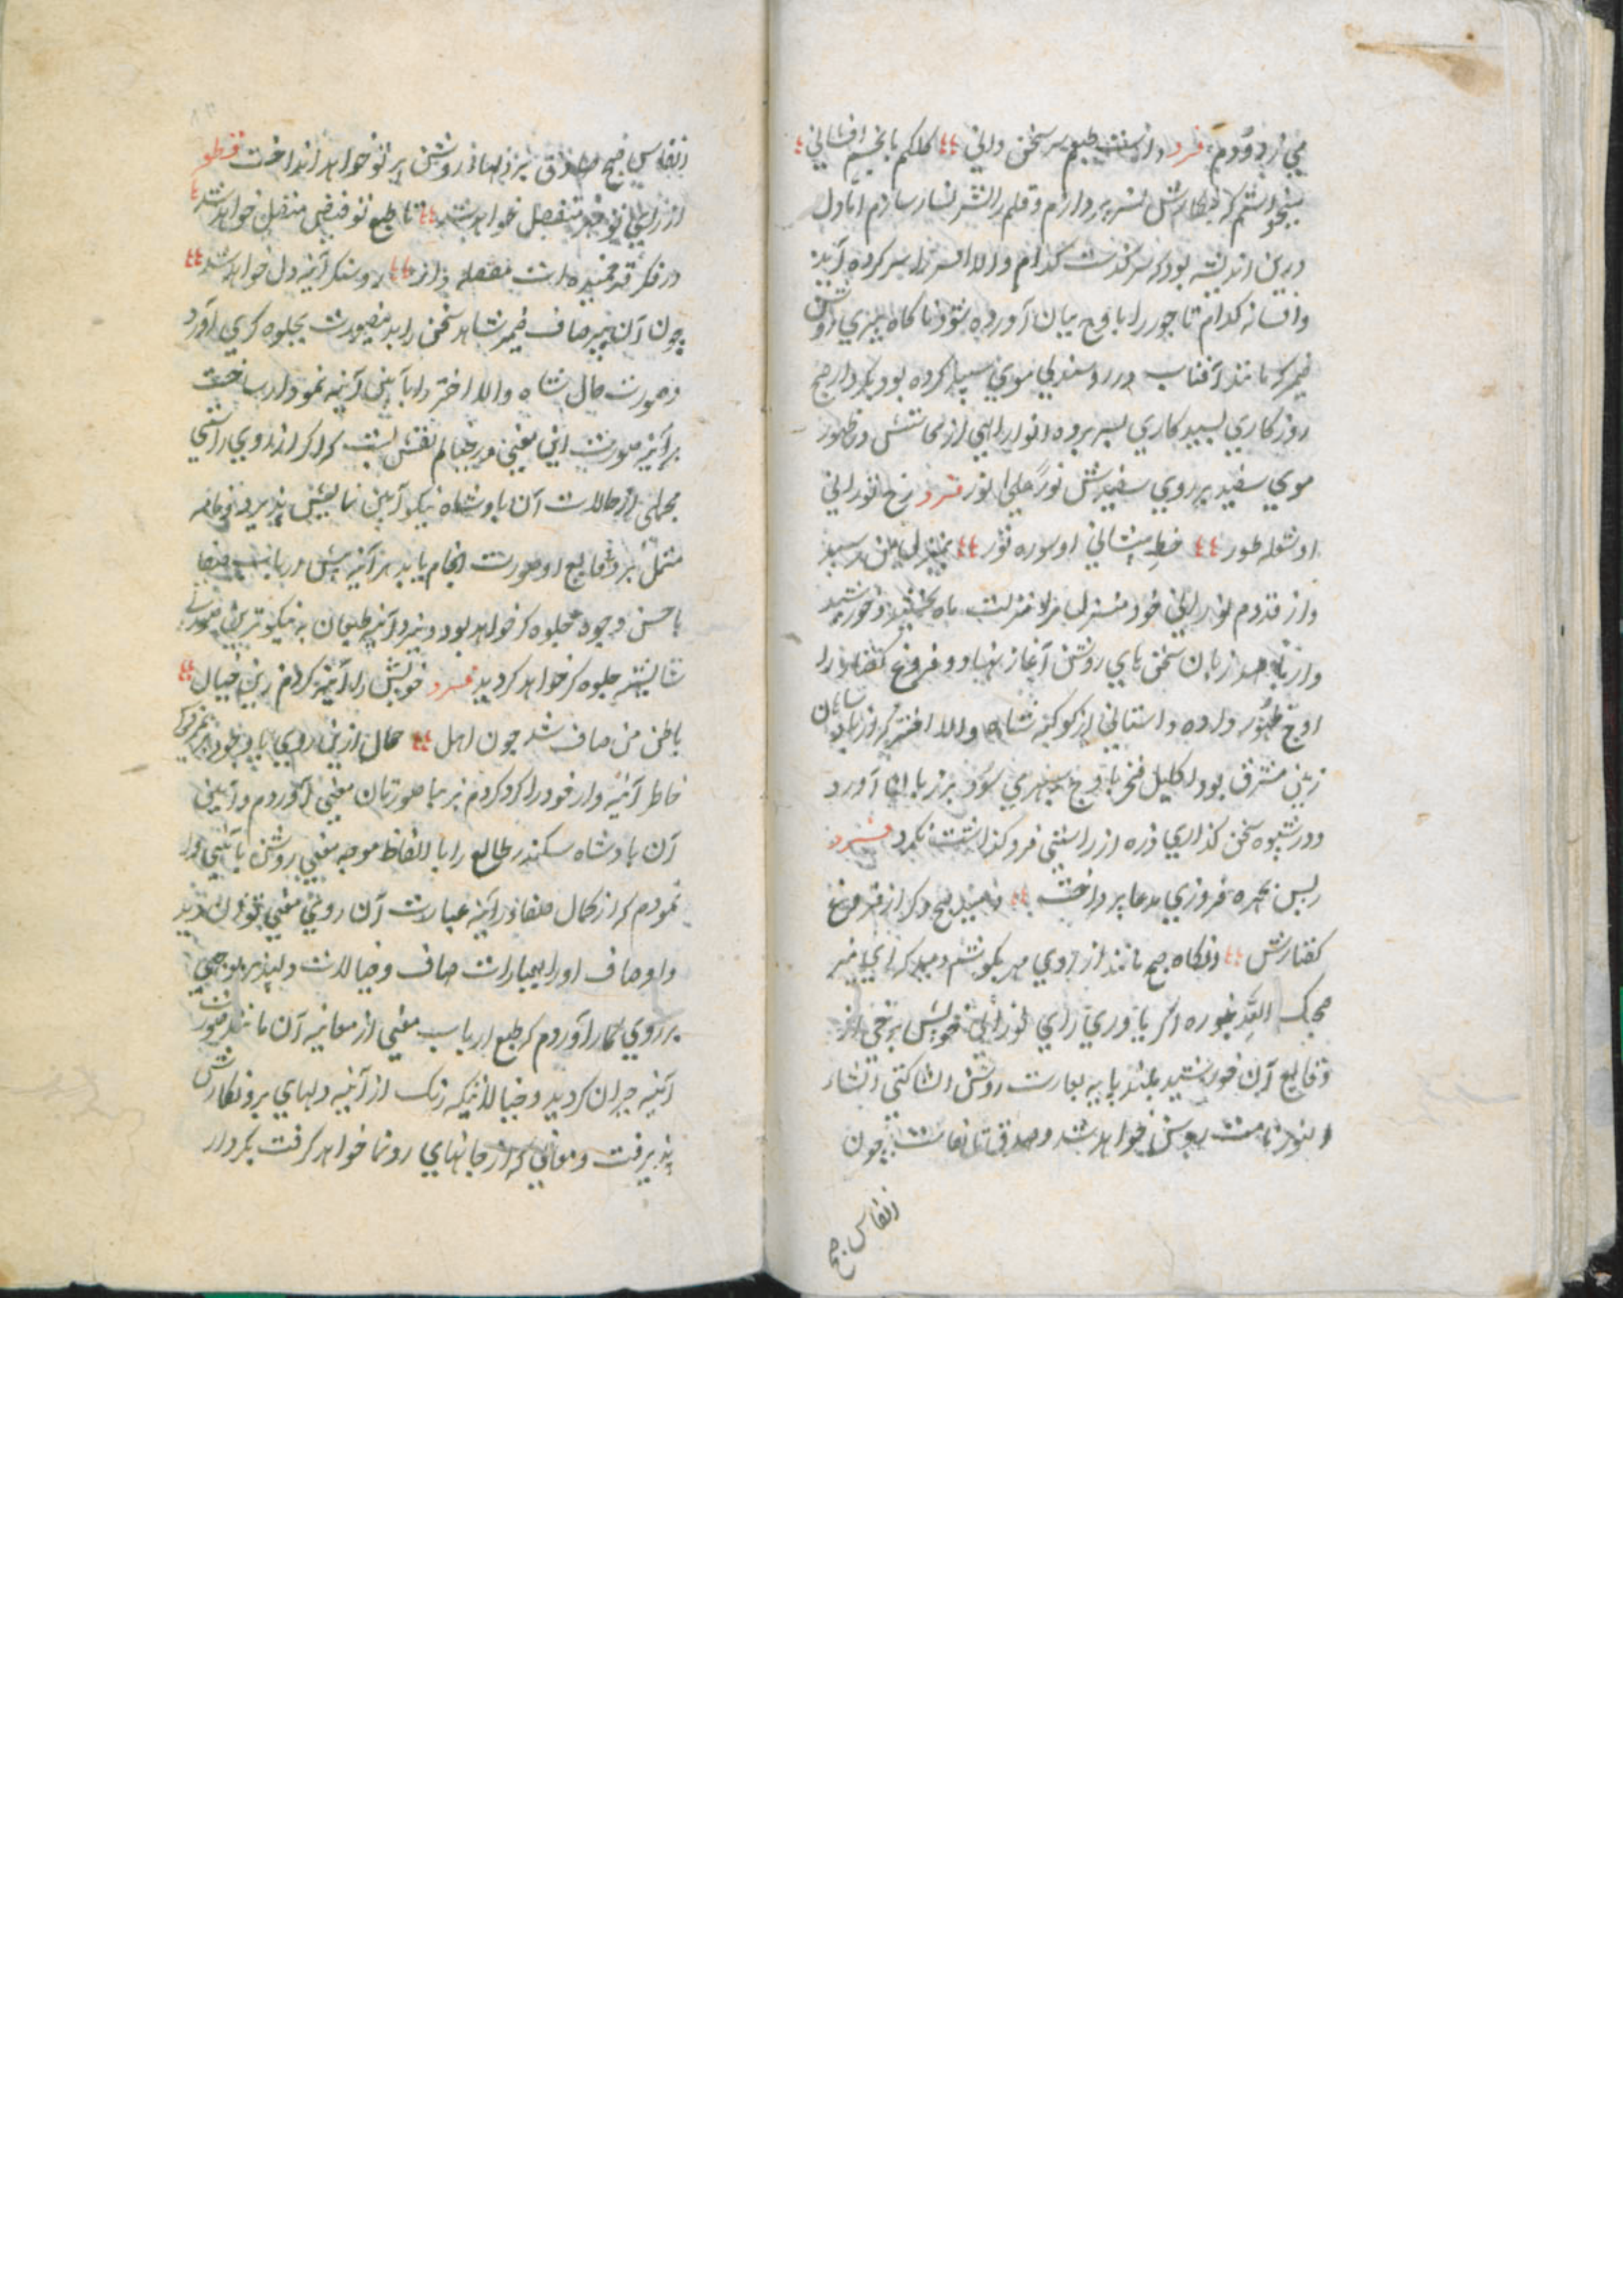 می زدودم فرد داشت طبعم سر سخن دانی ٤٤ کلکم بانجم افشانی ٤
میخواستم که بنکارش نثر پردازم و قلم را نثر نسار سازم اما دل
درین اندیشه بود که سرکذشت کدام والا افسر را سر کرده آید
وافسانه کدام تاجور را باوج بیان آورده شود ناکاه پیری روشن
ضمیر که مانند آفتاب در روشندلی موی سپید کرده بود بکردار صبح
روزکاری بسپید کاری بسر برده انوار الهی از سیماتش در ظهور
موی سفید بر روی سفیدش نورٌ علی نور فرد رخ نورانی
او شعله طور ٤٤ خط پیشانی او سوره نور ٤٤ بمنزل من رسید
واز قدوم نورانی خود منزل مرا منزلت ماه بخشید و خورشید
وار با صد زبان سخن های روشن آغاز نهاد و فروغ کفتار را
اوج ظهور داده داستانی از کوکبه شاه والا اختر که از شاهان
زمین مشرق بود اکلیل فخر باوج سپهری سود بر زبان آورد
ودر شیوه سخن کذاری ذره از راستی فرو کذاشت نکرد فرد
پس بچهره فروزی مدعا پرداخت ٤٤ خندید صبح دکر از فروغ
کفتارش ٤٤ وانکاه صبح مانند از روی مهر بکوشم دمید که ای منیر
صحبک الله بنوره اکر بیاوری رای نورانی خویش برخی از
وقایع آن خورشید بلند پایه بعبارت روشن انشا کنی انشاء
انور نامت روشن خواهد شد وصدق مقامت چون
انفاس صبح
انفاس صبح صادق بر دلها روشن پرتو خواهد انداخت قطعه
از رای تو مهر منفعل خواهد شد ٤٤ تا طبع تو فیض متصل خواهد شد ٤
در فکر قد خمیده ات مصقله وار ٤٤ روشنکر آینه دل خواهد شد ٤٤
چون آن پیر صاف ضمیر شاهد سخن را بدینصورت بجلوه کری آورد
وصورت حال شاه والا اختر را بآیین آینه نمودار ساخت
بر آینه صورت این معنی در خیالم نقش بست که اکر از روی راستی
مجملی از حالات آن پادشاه نیکو آیین نمایش پذیرد ونامه
مشتمل بر وقایع او صورت انجام یابد هر آینه پیش ارباب صفا
باحسن وجوه جلوه کر خواهد بود ونزد آینه طبعان به نیکوترین صورتی
شایسته جلوه کر خواهد کردید فرد خویش را آینه کردم زین خیال ٤٤
باطن من صاف شد چون اهل ٤٤ حال ازین روی باوجود
خاطر آئینه وار خود را کرد کردم نزیبا صورتان معنی آوردم وآیین
آن پادشاه سکندر طالع را با الفاظ موجه معنی روشن باینی ادا
نمودم که از کمال صفا در آینه عبارت آن روی معنی توان دید
واوصاف او را بعبارات صاف وخیالات دلپذیر بوجهی
بر روی کار آوردم که طبع ارباب معنی از معاینه آن مانند صورت
آئینه حیران کردید وخیالاتیکه زنک از آئینه دلهای بر ونکارش
پذیرفت ومعانی که از جانهای رونما خواهد کرفت بکردار